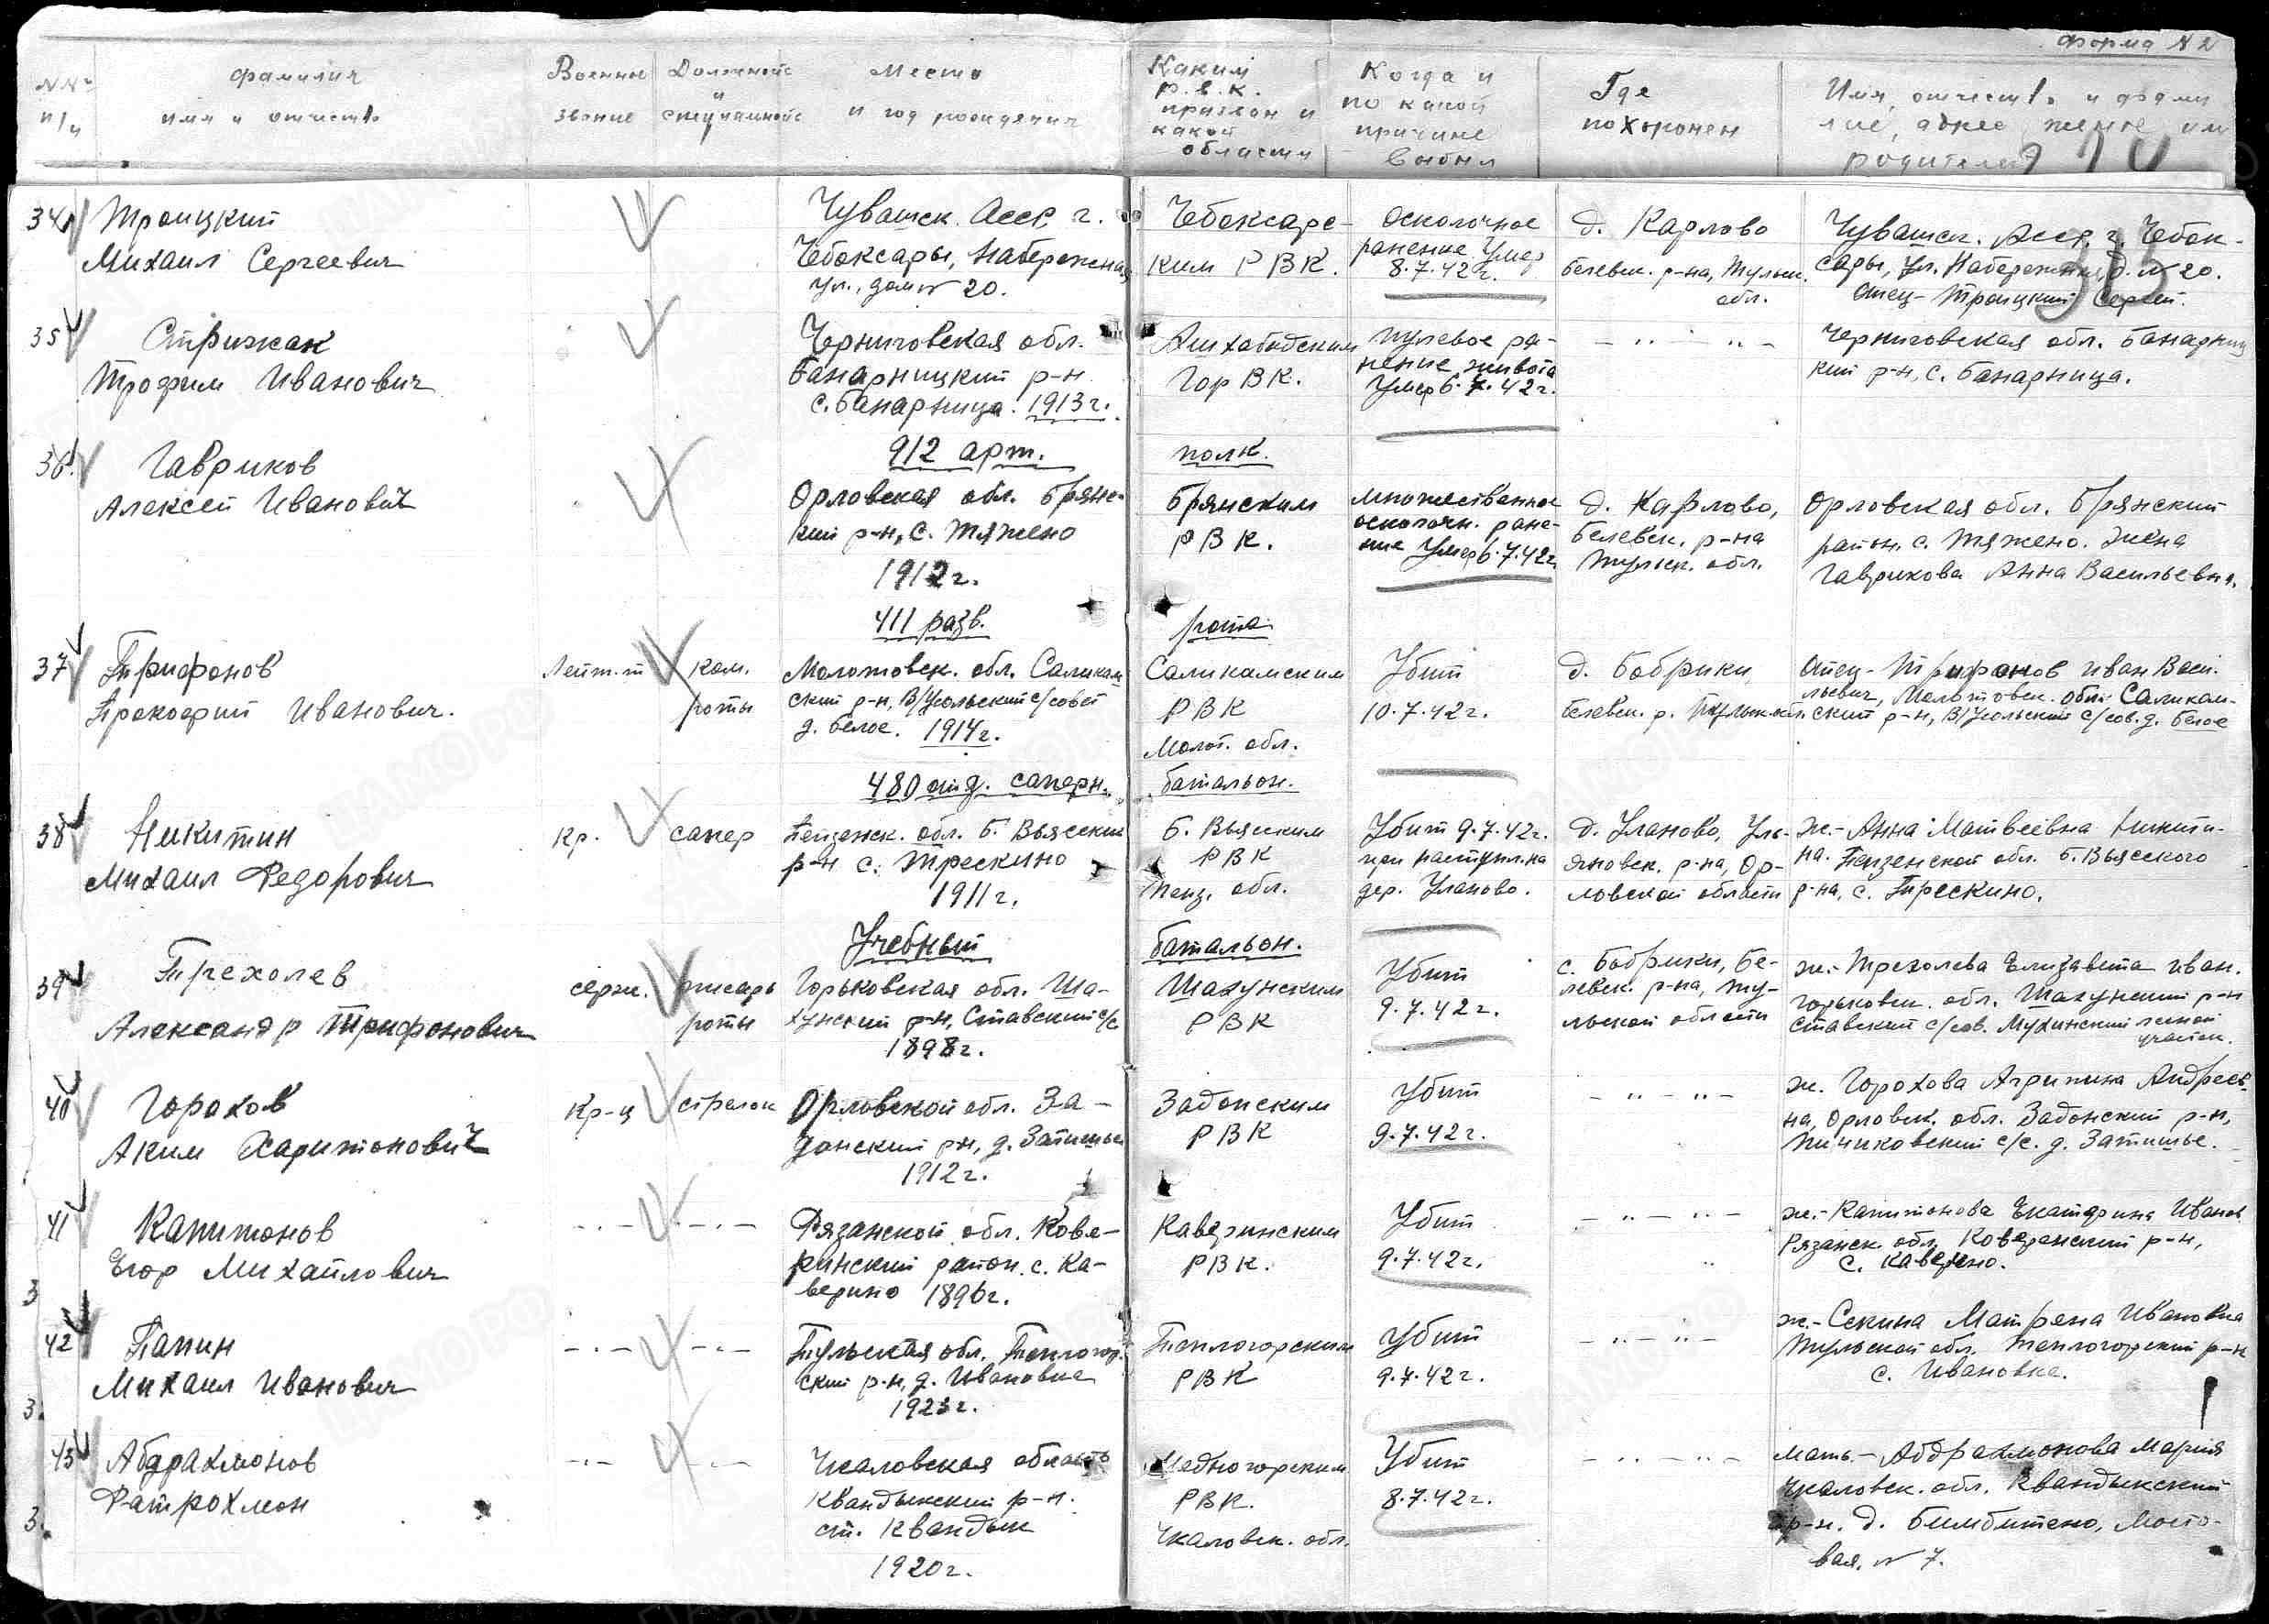 Форма № 2
№ №
п/п
фамилия
имя и отчество
Военное
звание
Должность
и
специальность
Место
и год рождения
Каким
Р.В.К.
призван и
какой
области
Когда и
по какой
причине
выбыл
Где
похоронен
Имя, отчество и фами
лие, адрес жены или
родителей
34
Троицкий
Михаил Сергеевич
Чувашск. Асср, г.
Чебоксары, Набережная
ул., дом № 20.
Чебоксарс-
ким РВК.
Осколочное
ранение Умер
8.7.42 г.
д. Карлово
Белевск. р-на, Тульск.
обл.
Чувашск. Асср, г. Чебок-
сары, ул. Набережная, д. № 20.
Отец- Троицкий Сергей.
35
Стрижак
Трофим Иванович
Черниговская обл.
Банарницкий р-н
с. Банарница. 1913 г.
Ашхабадским
Гор ВК.
пулевое ра-
нение живота
Умер 6.7.42 г.
- „ - „ -
Черниговская обл. Банарниц
кий р-н, с. Банарница.
912 арт.
полк.
36.
Гавриков
Алексей Иванович
Орловская обл. Брянс-
кий р-н, с. Тяжено
1912 г.
Брянским
РВК.
множественное
осколочн. ране-
ние Умер 6.7.42 г
д. Карлово,
Белевск. р-на
Тульск. обл.
Орловская обл. Брянский
район. с. Тяжено. Жена
Гаврикова Анна Васильевна.
411 разв.
рота
37
Трифонов
Прокофий Иванович.
Лейт.-т
ком.
роты
Молотовск. обл. Саликам
ский р-н, В/Усольский с/совет
д. Белое. 1914 г.
Саликамским
РВК
Молот. обл.
Убит
10.7.42 г.
д. Бобрики,
Белевск. р. Тульск. обл.
Отец- Трифонов Иван Васи-
льевич, Молотовск. обл. Саликам-
ский р-н, В/Усольский с/сов. д. Белое
480 отд. саперн.
батальон.
38
Никитин
Михаил Федорович
Кр.
сапер
Пензенск. обл. Б. Вьясский
р-н с. Трескино
1911 г.
Б. Вьясским
РВК
Пенз. обл.
Убит 9.7.42 г.
при наступл. на
дер. Уланово.
д. Уланово, Уль-
яновск. р-на, Ор-
ловской области
ж.- Анна Матвеевна Никити-
на. Пензенской обл. Б. Вьясского
р-на, с. Трескино.
Учебный
батальон.
39
Трехолев
Александр Трифонович
серж.
писарь
роты
Горьковская обл. Ша-
хунский р-н, Ставский с/с
1898 г.
Шахунским
РВК
Убит
9.7.42 г.
с. Бобрики, Бе-
левск. р-на, Ту-
льской области
ж.- Трехолева Елизавета Иван.
Горьковск. обл. Шахунский р-н
Ставский с/сов. Мухинский лесной
участок.
40
Горохов
Аким Харитонович
Кр-ц
стрелок
Орловской обл. За-
донский р-н, д. Затишье
1912 г.
Задонским
РВК
Убит
9.7.42 г.
- „ - „ -
ж. Горохова Агрипина Андреев-
на, Орловск. обл. Задонский р-н,
с/с. д. Затишье.
41
Капитонов
Егор Михайлович
- „ -
- „ -
Рязанской обл. Каве-
ринский район. с. Ка-
верино 1896 г.
Каверинским
РВК.
Убит
9.7.42 г.
- „ - „ -
ж.- Капитонова Екатерина Иванов
Рязанск. обл. Коверенский р-н,
с. Каверино.
3
42
Папин
Михаил Иванович
- „ -
- „ -
Тульская обл. Теплогор-
ский р-н, д. Ивановка
1923 г.
Теплогорским
РВК
Убит
9.7.42 г.
- „ - „ -
ж.- Секина Матрена Ивановна
Тульской обл. Теплогорский р-н
с. Ивановка.
3.
43
Абдрахмонов
Фатрохмон
- „ -
- „ -
Чкаловская область
Квандыкский р-н.
ст. Квандык
1920 г.
Медногорским
РВК.
Чкаловск. обл.
Убит
8.7.42 г.
- „ - „ -
мать - Абдрахмонова Мария
Чкаловск. обл. Квандыкский
р-н. д. Бимбитено, Мосто-
вая, № 7.
3.